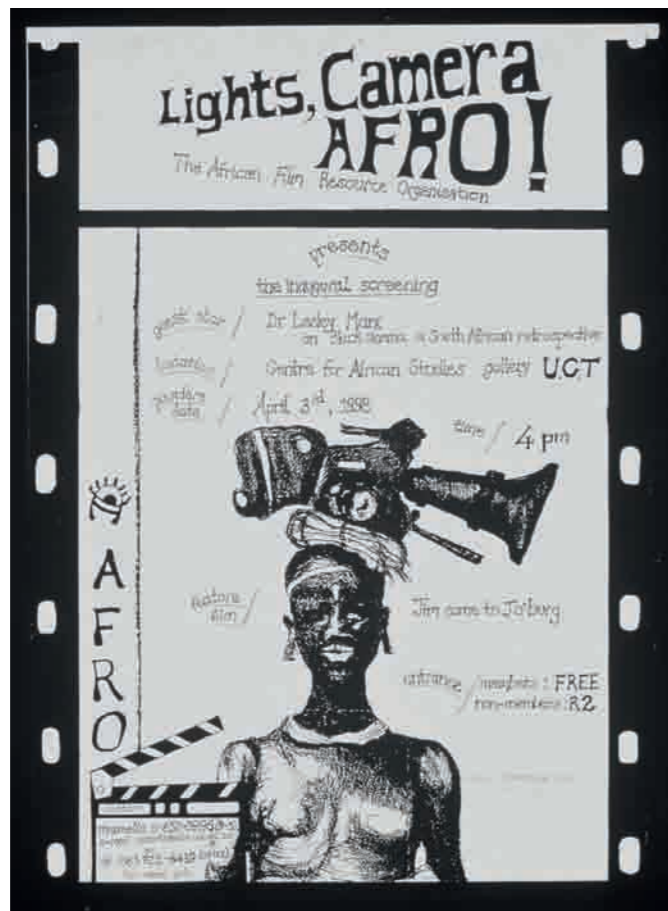 Lights, Camera
AFRO!
The African Film Resource Organisation
presents
the inaugural screening
guest star / Dr Lesley Marx
on South African retrospective
location / Centre for African Studies gallery U.C.T
date / April 3rd, 1998
time / 4 pm
AFRO
feature film / Jim comes to Jo'burg
entrance / members : FREE
non-members : R2